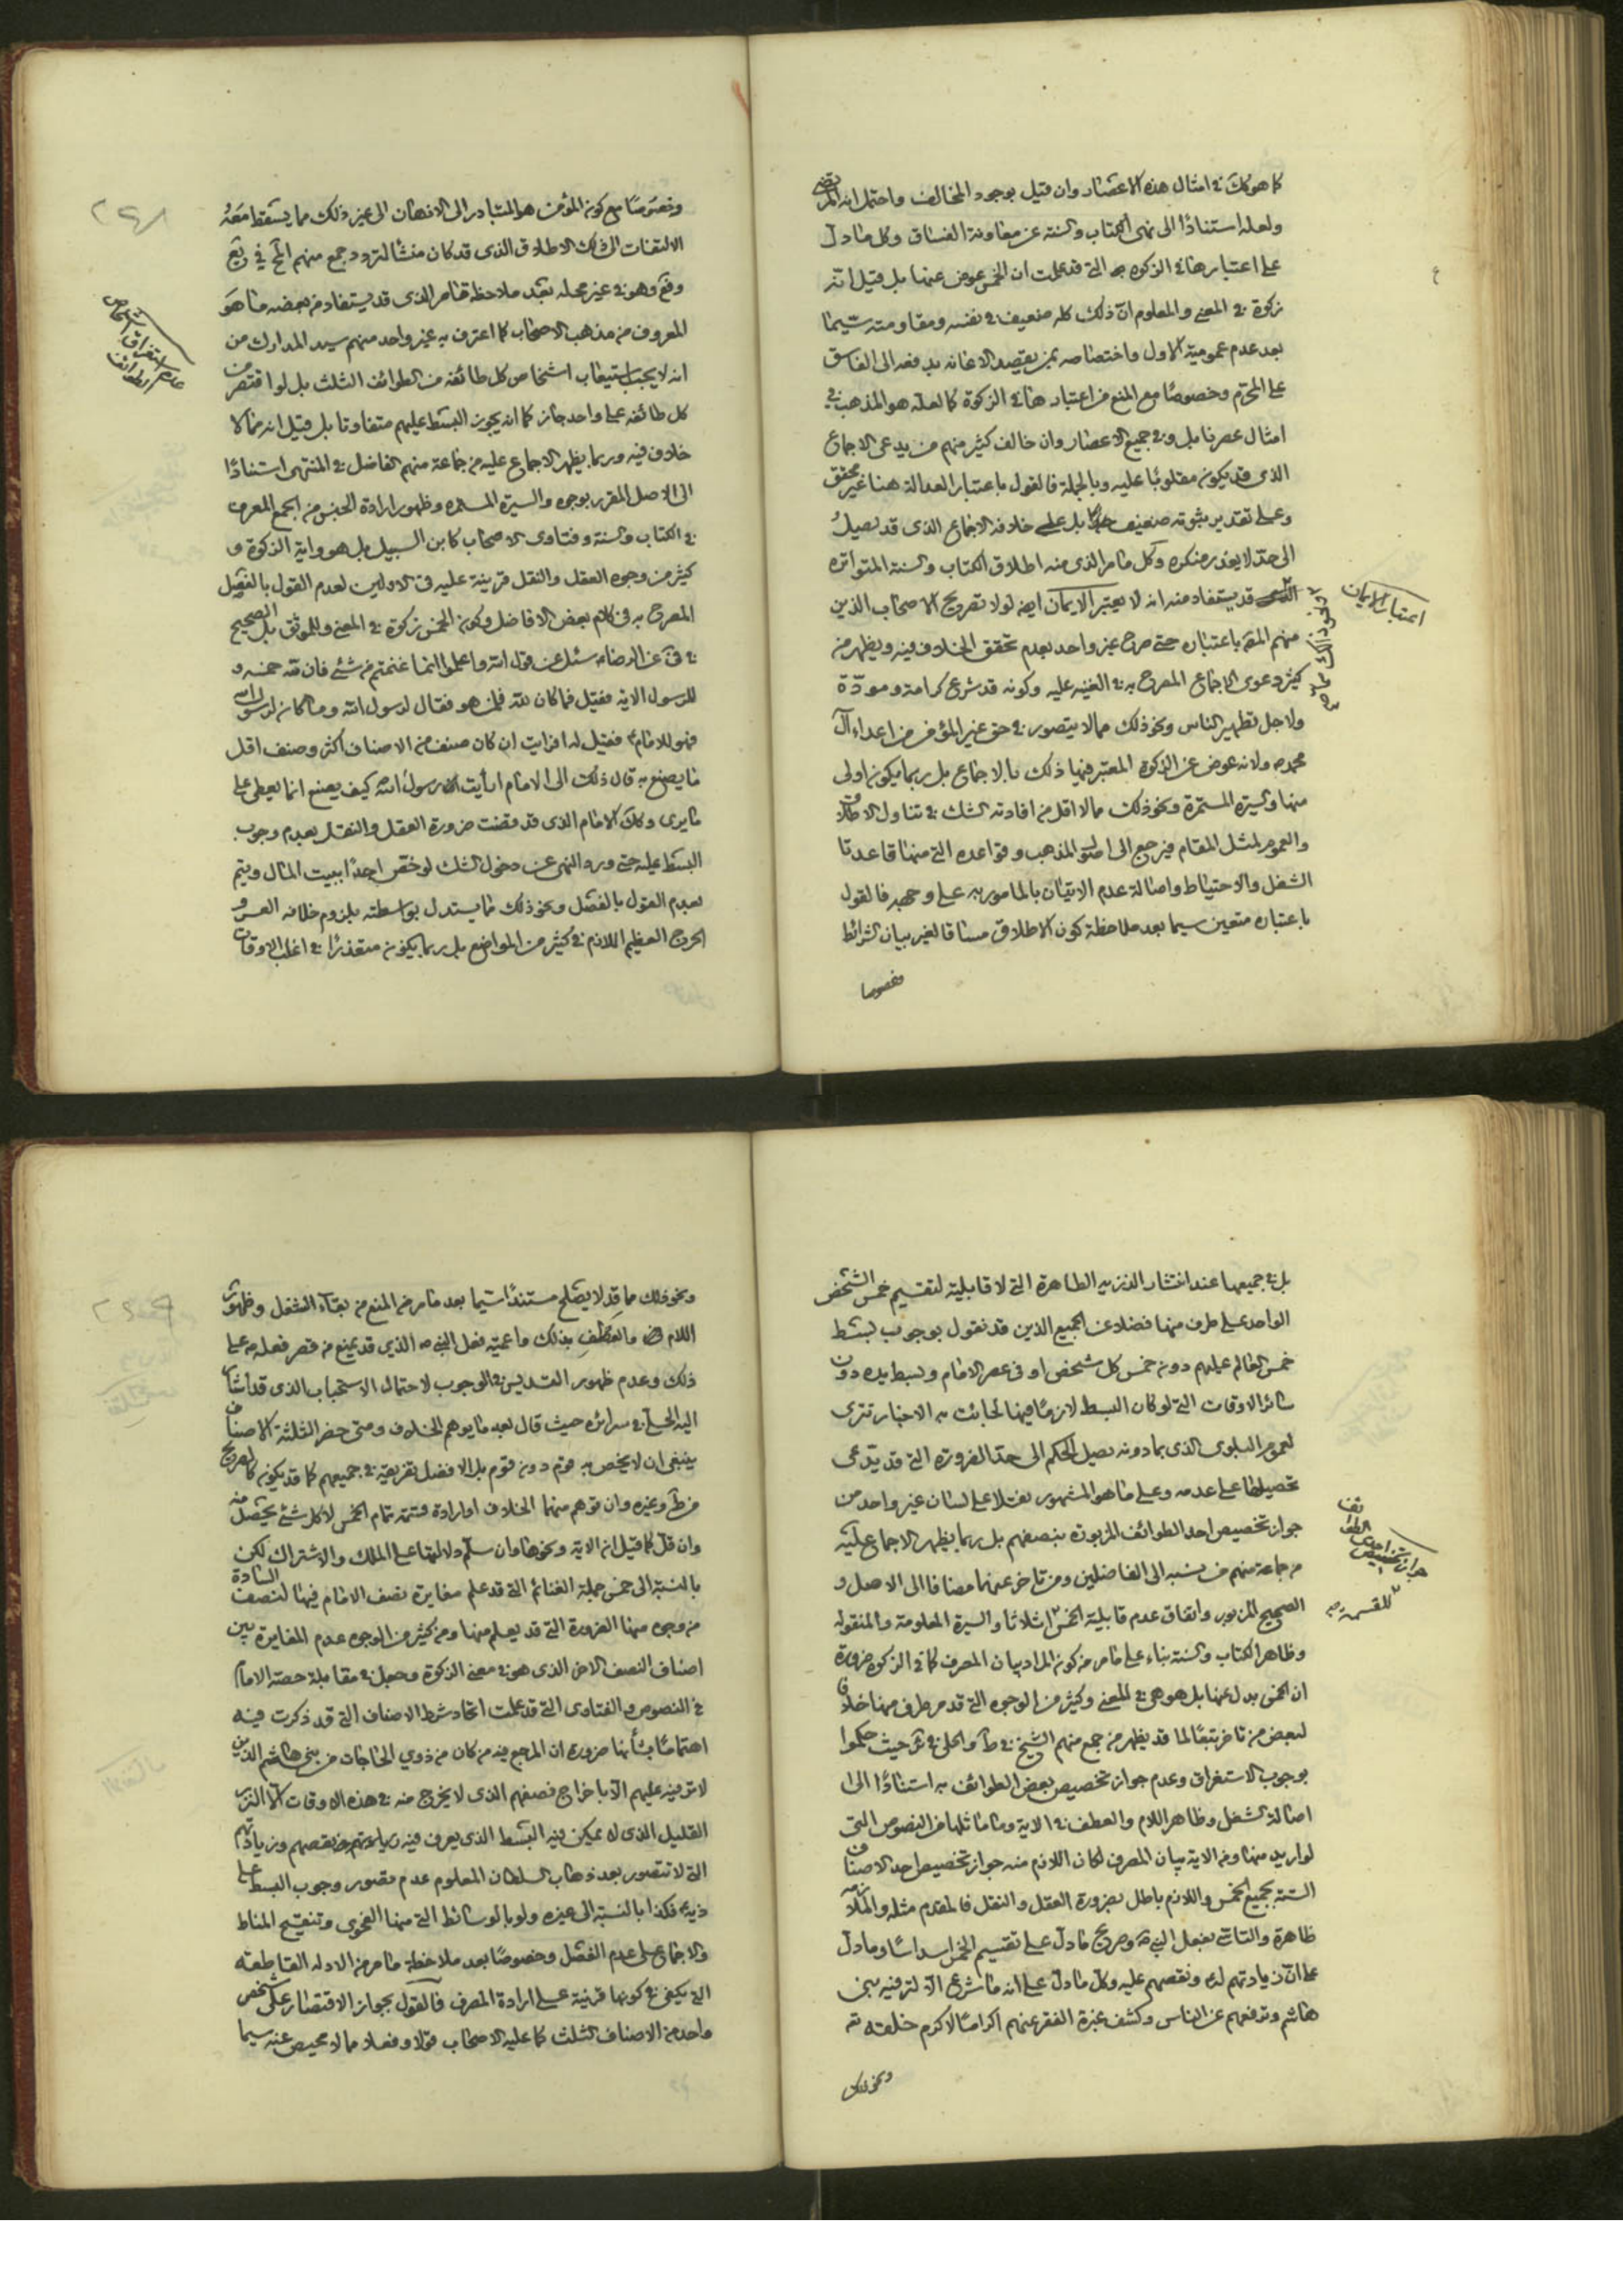 كما هو كك في امثال هذه الاعصار وان قيل بوجود المخالف واحتمل انه المرتضى
ولعله استنادًا الى نهى الكتاب والسنة عن معاونة الفساق وكل ما دل
على اعتبارها في الزكوة التي قد علمت ان الخمس عوض عنها بل قيل انه
زكوة في المعنى والمعلوم ان ذلك كله ضعيف في نفسه ومقاومته سيما
بعد عدم عمومية الاول واختصاصه بمن يقصد الاعانة بدفعه الى الفاسق
على المحرم وخصوصًا مع المنع من اعتبارها في الزكوة كما لعله هو المذهب في
امثال عصرنا بل وفي جميع الاعصار وان خالف كثير منهم من يدعى الاجماع
الذي قد يكون مقلوبًا عليه وبالجملة فالقول باعتبار العدالة هنا غير محقق
وعلى تقدير ثبوته ضعيف بل على خلافه الاجماع الذى قد يصل
الى حد لا يعذر منكره وكل ما مر الذى منه اطلاق الكتاب والسنة المتواتره
قد يستفاد منه انه لا يعتبر الايمان ايضا لولا تصريح الاصحاب الذين
منهم المص باعتباره حتى صرح غير واحد بعدم تحقق الخلاف فيه ويظهر من
كثير دعوى الاجماع المصرح به في الغنيه عليه وكونه قد شرع كرامة ومودة
ولاجل تطهير الناس ونحو ذلك مما لا يتصور في حق غير المؤمن من اعداء آل
محمد ص ولانه عوض عن الزكوة المعتبر فيها ذلك بالاجماع بل ربما يكون اولى
منها والسيرة المستمرة ونحو ذلك مما لا اقل من افادته الشك في تناول الاطلاق
والعموم لمثل المقام فيرجع الى اصول المذهب وقواعده التي منها قاعدتا
الشغل والاحتياط واصالة عدم الاتيان بالمامور به على وجهه فالقول
باعتباره متعين سيما بعد ملاحظة كون الاطلاق مساقا لغير بيان الشرائط
وخصوصا
اعتبار الايمان
وخصوصًا مع كون المؤمن هو المتبادر الى الاذهان الى غير ذلك مما يسقط معه
الالتفات الى ذلك الاطلاق الذى قد كان منشأ لتردد جمع منهم المح في يع
وفع وهو في غير محله بعد ملاحظة ما مر الذى قد يستفاد من بعضه ما هو
المعروف من مذهب الاصحاب كما اعترف به غير واحد منهم سيد المدارك من
انه لا يجب استيعاب اشخاص كل طائفه من الطوائف الثلث بل لو اقتصر من
كل طائفه على واحد جاز كما انه يجوز البسط عليهم متفاوتا بل قيل انه مما لا
خلاف فيه وربما يظهر الاجماع عليه من جماعة منهم الفاضل في المنتهى استنادًا
الى الاصل المقرر بوجوه والسيرة المستمره وظهور ارادة الجنس من الجمع المعرف
في الكتاب والسنة وفتاوى الاصحاب كابن السبيل بل هو واية الزكوة و
كثير من وجوه العقل والنقل قرينة عليه في الاولين لعدم القول بالفصل
المصرح به في كلام بعض الافاضل وكون الخمس زكوة في المعنى وللموثق بل الصحيح
في عن الرضا ع سئل عن قول الله واعلموا انما غنمتم من شئ فان لله خمسه و
للرسول الاية فقيل فما كان لله فلمن هو فقال لرسول الله وما كان لرسول الله
فهو للامام ع فقيل له افرايت ان كان صنف من الاصناف اكثر وصنف اقل
ما يصنع به قال ذلك الى الامام ارأيت رسول الله كيف يصنع انما يعطى على
ما يرى وكك الامام الذى قد قضت ضرورة العقل والنقل بعدم وجوب
البسط عليه حتى ورد النهى عن دخول الشك لو خص احدًا ببيت المال ويتم
بعدم القول بالفصل ونحو ذلك مما يستدل بواسطته بلزوم خلافه العسر و
الحرج العظيم اللازم في كثير من المواضع بل ربما يكون متعذرًا في اغلب الاوقات
عدم استغراق اشخاص
الطوائف
بل في جميعها عند انتشار الذريه الطاهرة التي لا قابلية لتقسيم خمس الشخص
الواحد على طرف منها فضلا عن الجميع الذين قد نقول بوجوب البسط
خمس العالم عليهم دون خمس كل شخص او في عصر الامام وبسط يده دون
سائر الاوقات التي لو كان البسط لازمًا فيها لجائت به الاخبار تترى
لعموم البلوى الذى بما دونه يصل الحكم الى حد الضرورة التي قد يدعى
تحصيلها على عدمه وعلى ما هو المشهور نقلا على لسان غير واحد من
جواز تخصيص احد الطوائف المزبورة بنصفهم بل ربما يظهر الاجماع عليه
من جماعة منهم من نسبه الى الفاضلين ومن تاخر عنهما مضافا الى الاصل و
الصحيح المزبور واتفاق عدم قابلية الخمس اثلاثا والسيرة المعلومة والمنقوله
وظاهر الكتاب والسنة بناء على ما مر من كون المراد بيان المصرف كما في الزكوة ضرورة
ان الخمس بدل عنها بل هو هي في المعنى وكثير من الوجوه التي قد مر طرف منها خلافا
لبعض من تاخر تبعًا لما قد يظهر من جمع منهم الشيخ في ط والحلي في ئر حيث حكموا
بوجوب الاستغراق وعدم جواز تخصيص بعض الطوائف به استنادًا الى
اصالة الشغل وظاهر اللام والعطف في الاية وما ماثلها من النصوص التي
لو اريد منها ومن الاية بيان المصرف لكان اللازم منه جواز تخصيص احد الاصناف
الستة بجميع الخمس واللازم باطل بضرورة العقل والنقل فالمقدم مثله والملازمه
ظاهرة والتاسى بفعل النبى ص وصريح ما دل على تقسيم الخمس اسداسًا وما دل
على ان زيادتهم له ونقصهم عليه وكل ما دل على انه ما شرع الا لترفيه بنى
هاشم وترفعهم عن الناس وكشف عبرة الفقر عنهم اكرامًا لاكرم خلقه
ونحو ذلك
جواز تخصيص احدى الطوائف
للقسمة
ونحو ذلك مما قد لا يصلح مستندًا سيما بعد ما مر من المنع من بقاء الشغل وظهور
اللام والعطف بذلك وماعية فعل النبى ص الذي قد يمنع من قصر فعله ص على
ذلك وعدم ظهور التسديس في الوجوب لاحتمال الاستحباب الذى قد اشار
اليه الحلى في سرائره حيث قال بعد ما يوهم الخلاف ومتى حضر الثلثة الاصناف
ينبغى ان لا يخص به قوم دون قوم بل الافضل تفريقه في جميعهم كما قد يكون كالصريح
من ط وغيره وان توهم منهما الخلاف او ارادة قسمة تمام الخمس لا كل شئ يحصل منه
وان قل كما قيل انه الاية ونحوها وان سلم دلالتها على الملك والاشتراك لكن
بالنسبة الى خمس جملة الغنائم التي قد علم مغايرة نصف الامام فيها لنصف السادة
من وجوه منها الضرورة التي قد يعلم منها ومن كثير من الوجوه عدم المغايرة بين
اصناف النصف الاخر الذى هو في معنى الزكوة وجعل في مقابلة حصة الامام
في النصوص والفتاوى التي قد علمت اتحاد شرط الاصناف التي قد ذكرت فيه
اهتمامًا بشأنها ضرورة ان المرجع فيه من كان من ذوي الحاجات من بنى هاشم الذين
لا ترفيه عليهم الا باخراج نصفهم الذى لا يخرج منه في هذه الاوقات الا النزر
القليل الذى لا يمكن فيه البسط الذى يعرف فيه نقصهم وزيادتهم
التي لا تتصور بعد ذهاب السلطان المعلوم عدم قصور وجوب البسط على
ذيه فكذا بالنسبة الى غيره ولو بالوسائط التي منها الفحوى وتنقيح المناط
والاجماع على عدم الفصل وخصوصًا بعد ملاحظة ما مر من الادله القاطعه
التي يكفى في كونها قرينة على ارادة المصرف فالقول بجواز الاقتصار على شخص
واحد من الاصناف الثلث كما عليه الاصحاب قولا وفعلا مما لا محيص عنه سيما